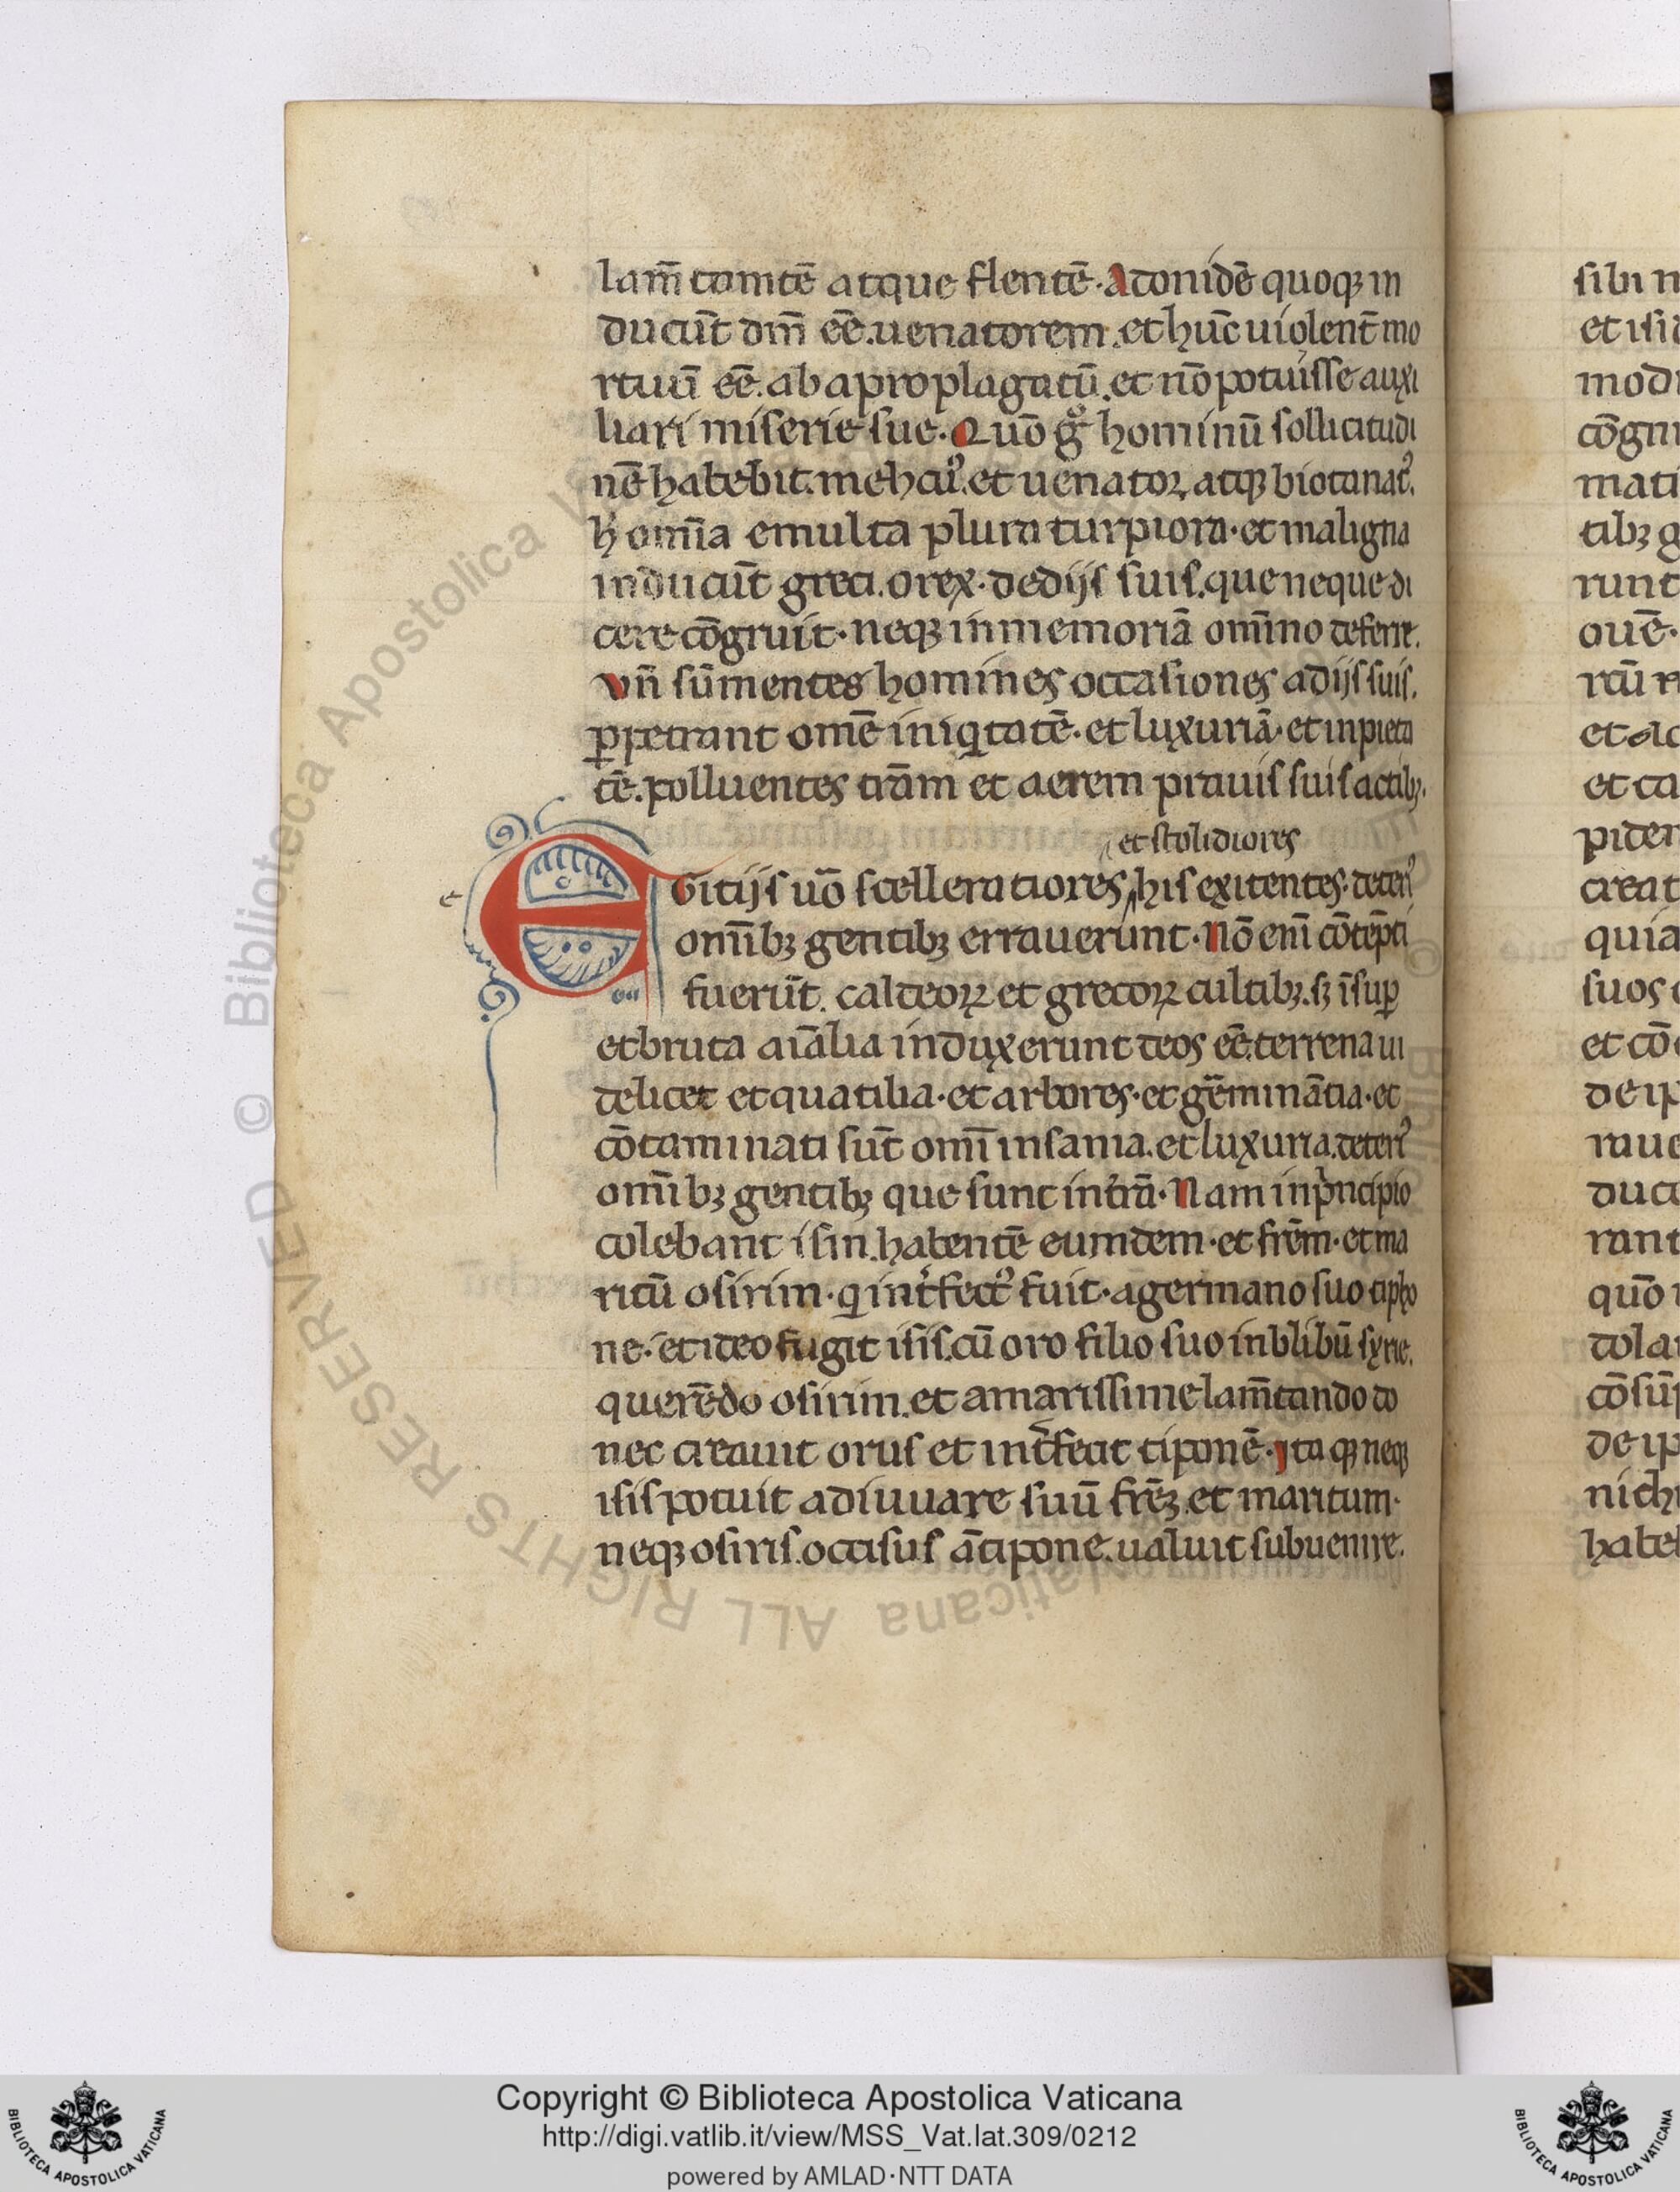 lam̄tantē atque flentē. Adonidē quoqꝫ in
ducūt dm̄ eē. uenatorem. et hūc uiolent̄ mo
rtuū eē. ab apro plagatū. et nō potuisse auxi
liari miserie sue. Quō gͦ hominū sollicitudi
nē habebit. mehcuꝰ. et uenator, atqꝫ biotanatꝰ.
h̄ omīa emulta plura turpiora. et maligna
inducūt greci. o rex. de dijs suis. que neque di
cere cōgruit. neqꝫ in memoriā omīno deferre.
vn̄ sūmentes homines occasiones a dijs suis.
ꝑpetrant omē iniqͥtatē. et luxuriā. et inpieta
tē. polluentes trām et aerem prauis suis actibꝫ.
et stolidiores
e
EGitijs uō scelleratiores, his exitentes. deteriꝰ
omībꝫ gentibꝫ errauerunt. Nō enī cōtēpti
fuerūt. caldeoꝝ et grecoꝝ cultibꝫ. sꝫ īsuꝑ
et bruta aīalia induxerunt deos eē. terrena ui
delicet et quatilia. et arbores. et gēminātia. et
cōtaminati sūt omī insania. et luxuria. deteriꝰ
omībꝫ gentibꝫ que sunt in trā. Nam in pͥncipio
colebant isin. habentē eumdem. et frēm. et ma
ritū osirim. qͥ int̄fectꝰ fuit. a germano suo tipho
ne. et ideo fugit isis. cū oro filio suo in blibū syrie.
querēdo osirim. et amarissime lam̄tando do
nec creauit orus et int̄fecit tiponē. Ita qꝫ neqꝫ
isis potuit adiuuare suū frēꝫ. et maritum.
neqꝫ osiris. occisus a tipone. ualuit subuenire.
sibi
et isid
mod
cōgn
mati
tibꝫ g
runt
ouē.
rcū
et
et ca
piden
creat
quia
suos
et cō
de ip
raue
duc
rant
quō
dola
cōsūp
de ip
nich
habe
Copyright © Biblioteca Apostolica Vaticana
http://digi.vatlib.it/view/MSS_Vat.lat.309/0212
powered by AMLAD·NTT DATA
BIBLIOTECA APOSTOLICA VATICANA
BIBLIOTECA APOSTOLICA VATICANA
© Biblioteca Apostolica Vaticana ALL RIGHTS RESERVED